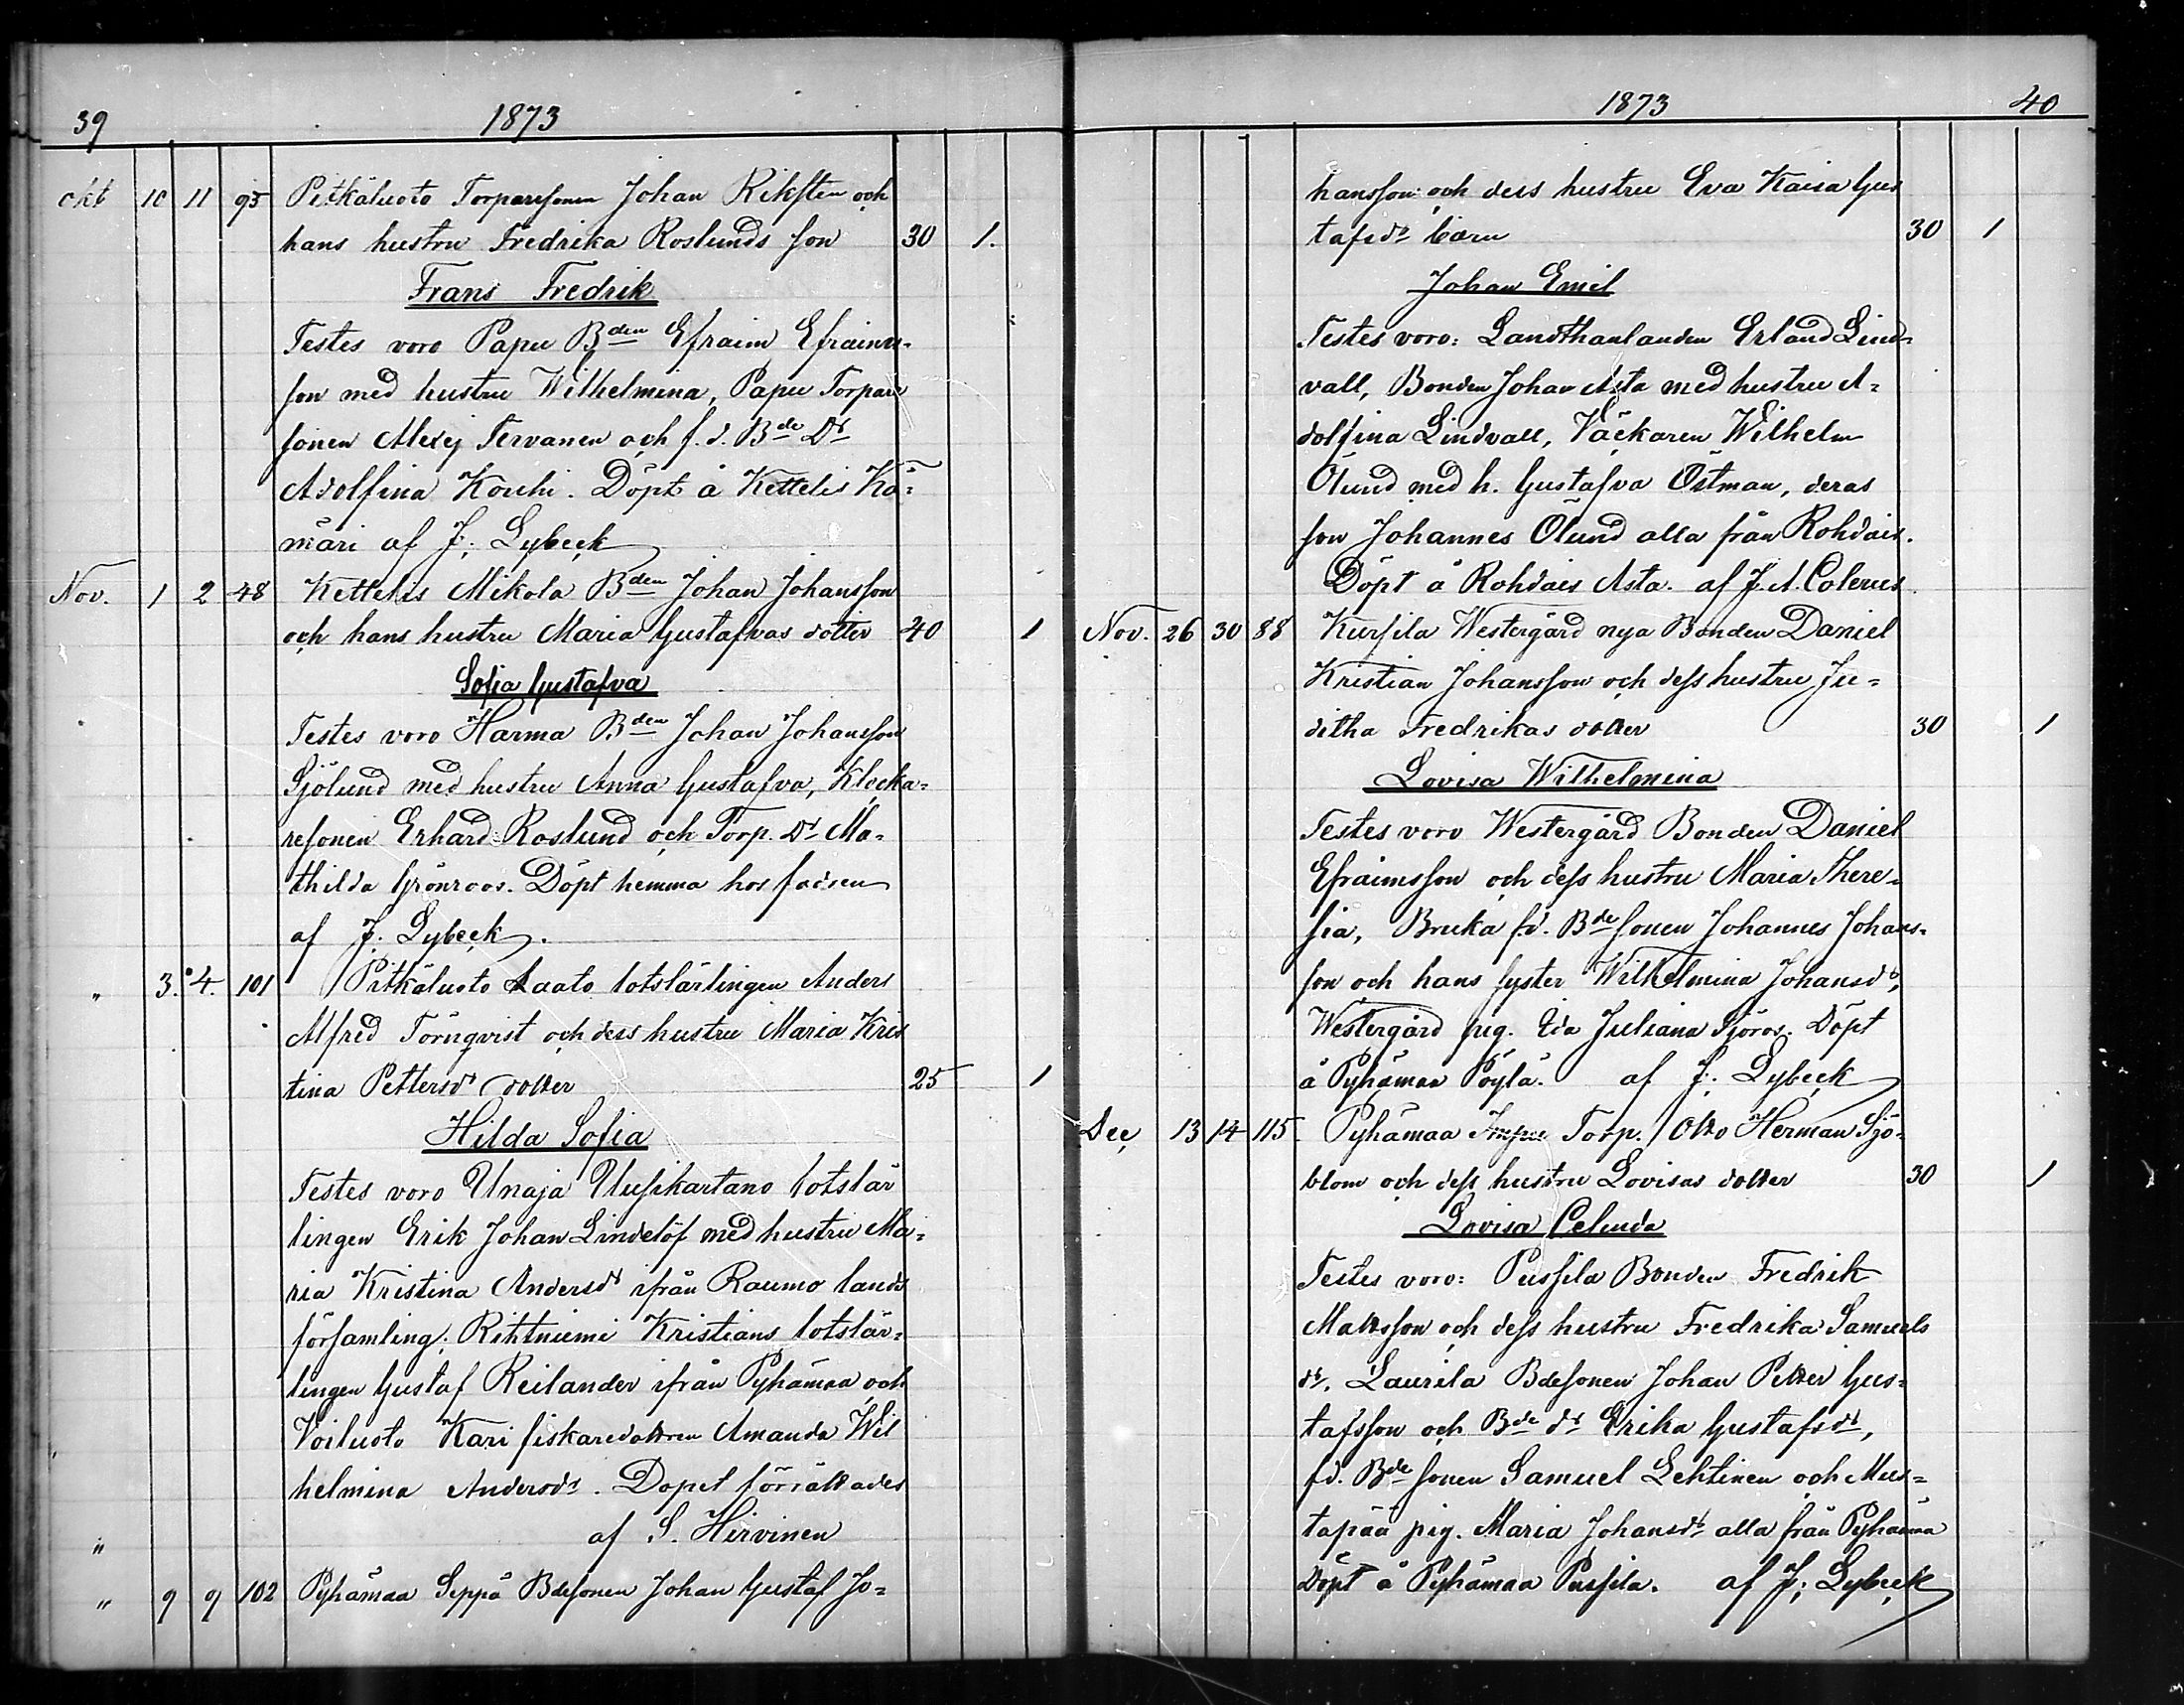 39 1873
okt 10 11 95 Pitkäluoto Torparesonen Johan Riksten och
hans hustru Fredrika Roslunds son 30 1.
Frans Fredrik
Testes voro Papu Bden Efraim Efraims-
son med hustru Wilhelmina, Papu Torpare
sonen Alexej Tervanen och f. d. Bde Dr
Adolfina Kouhi. Döpt å Kettelis Kä-
märi af J. Lybeck
Nov. 1 2 48 Kettelis Mikola Bden Johan Johansson
och hans hustru Maria Gustafvas dotter 40 1
Sofia Gustafva
Testes voro Harma Bden Johan Johansson
Sjölund med hustru Anna Gustafva, Klocka-
resonen Erhard Roslund och Torp. Dr Ma-
thilda Grönroos. Döpt hemma hos fadren
af J. Lybeck.
" 3. 4. 101 Pitkäluoto Laato lotslärlingen Anders
Alfred Törnqvist och dess hustru Maria Kris
tina Pettersdr dotter 25 1
Hilda Sofia
Testes voro Unaja Uusikartano lotslär
lingen Erik Johan Lindelöf med hustru Ma-
ria Kristina Andersdr ifrån Raumo lands
församling; Rihtniemi Kristians lotslär-
lingen Gustaf Reilander ifrån Pyhämaa och
Voiluoto Kari fiskaredottren Amanda Wil
helmina Andersdr. Dopet förrättades
" af S. Hirvinen
" 9 9 102 Pyhämaa Seppä Bdesonen Johan Gustaf Jo-
1873 40
hansson och dess hustru Eva Kaisa Gus
tafsdr barn 30 1
Johan Emil
Testes voro: Landthanlanden Erland Lind-
vall, Bonden Johan Asta med hustru A-
dolfina Lindvall, Väckaren Wilhelm
Ölund med h. Gustafva Östman, deras
son Johannes Ölund alla från Rohdais.
Döpt å Rohdais Asta. af J. A. Colerus
Nov. 26 30 88 Kursila Westergård nya Bonden Daniel
Kristian Johansson och dess hustru Ju-
ditha Fredrikas dotter 30 1
Lovisa Wilhelmina
Testes voro Westergård Bonden Daniel
Efraimsson och dess hustru Maria There-
sia, Bruka f.d. Bde sonen Johannes Johans-
son och hans syster Wilhelmina Johansdr,
Westergård pig. Ida Juliana Sjöros. Döpt
å Pyhämaa Pöylä. af J. Lybeck
Dec, 13 14 115. Pyhämaa Impu Torp. Otto Herman Sjö-
blom och dess hustru Lovisas dotter 30 1
Lovisa Celinda
Testes voro: Pussila Bonden Fredrik
Mattsson och dess hustru Fredrika Samuels
dr. Laurila Bdesonen Johan Petter Gus-
tafsson och Bde dr Erika Gustafsdr,
fd. Bde sonen Samuel Lehtinen och Mus-
tapää pig. Maria Johansdr alla från Pyhämaa
Döpt å Pyhämaa Pussila. af J. Lybeck